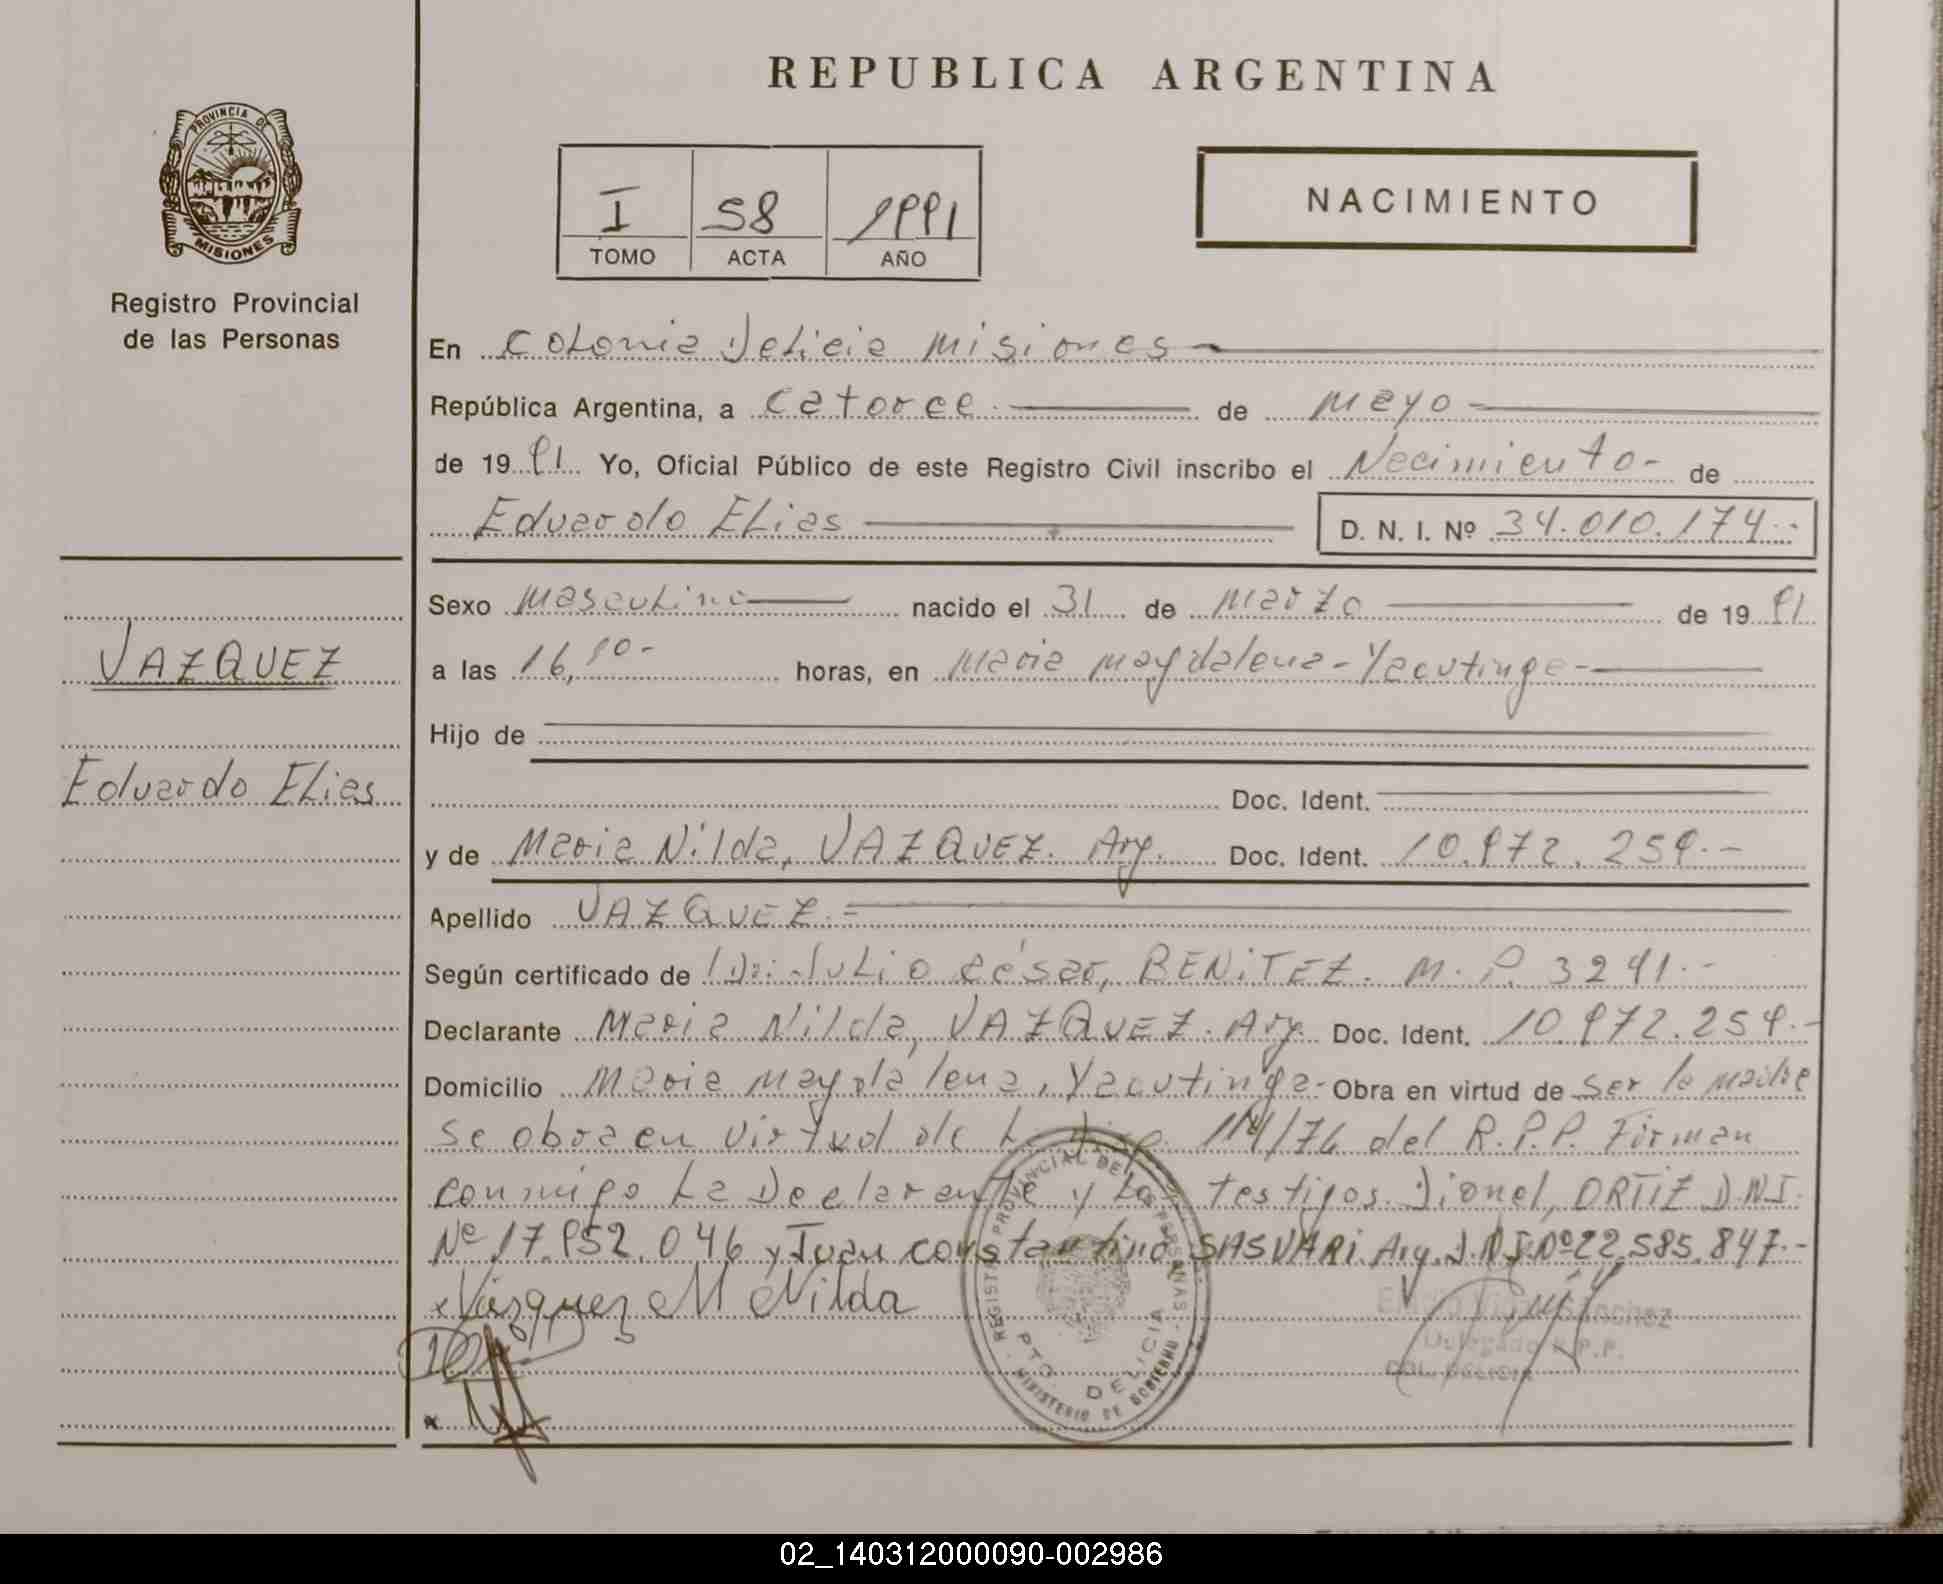 REPUBLICA ARGENTINA
PROVINCIA DE
MISIONES
Registro Provincial
de las Personas
I 58 1991
TOMO ACTA AÑO
NACIMIENTO
En Colonia Delicia Misiones
República Argentina, a catorce de mayo
de 1991 Yo, Oficial Público de este Registro Civil inscribo el Nacimiento - de
Eduardo Elias D. N. I. Nº 34.010.174.-
Sexo masculino nacido el 31 de marzo de 1991
a las 16,10- horas, en Maria Magdalena - Yacutinga -
Hijo de
Doc. Ident.
y de Maria Nilda, VAZQUEZ. Arg. Doc. Ident. 10.972.259.-
Apellido VAZQUEZ.-
Según certificado de Dr. Julio César, BENITEZ. M. P. 3291.-
Declarante Maria Nilda, VAZQUEZ. Arg. Doc. Ident. 10.972.259.-
Domicilio Maria Magdalena, Yacutinga - Obra en virtud de ser la madre
se obra en virtud de la disp. /76 del R.P.P. Firman
conmigo la Declarante y los testigos. Dionel, ORTIZ D.N.I.
Nº 17.952.046 y Juan constantino SASVARI. Arg. D.N.I. Nº 22.585.847.-
x Vasquez M Nilda
VAZQUEZ
Eduardo Elias
REGISTRO PROVINCIAL DE LAS PERSONAS
PTO. DELICIA
MINISTERIO DE GOBIERNO
Sanchez
Delegado R.P.P.
COL. DELICIA
x
02_140312000090-002986